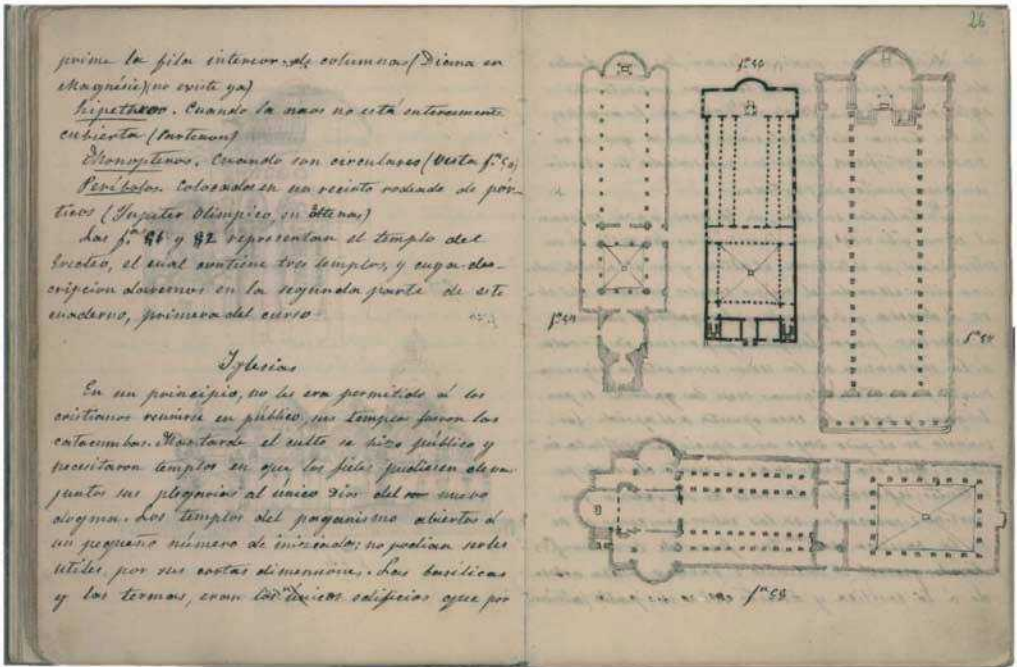 prime la fila interior de columnas (Diana en
Magnesie) (no existe ya)
hipethros. Cuando la naos no está enteramente
cubierta (Partenon)
Monopteros. Cuando son circulares (Vesta
Períbolos. Colocados en un recinto rodeado de pór-
ticos (Jupiter Olimpico, en Attenas)
Las y 82 representan el templo del
Erecteo, el cual contiene tres templos, y cuya des-
cripcion daremos en la segunda parte de este
cuaderno, primera del curso
Iglesias
En un principio, no les era permitido á los
cristianos reunirse en público, sus templos fueron las
catacumbas. Mas tarde el culto se hizo público y
necesitaron templos en que los fieles pudiesen elevar
juntos sus plegarias al único Dios del nuevo
dogma. Los templos del paganismo abiertos á
un pequeño número de iniciados; no podian serles
utiles, por sus cortas dimensiones. Las basilicas
y las termas, eran los únicos edificios que por
26